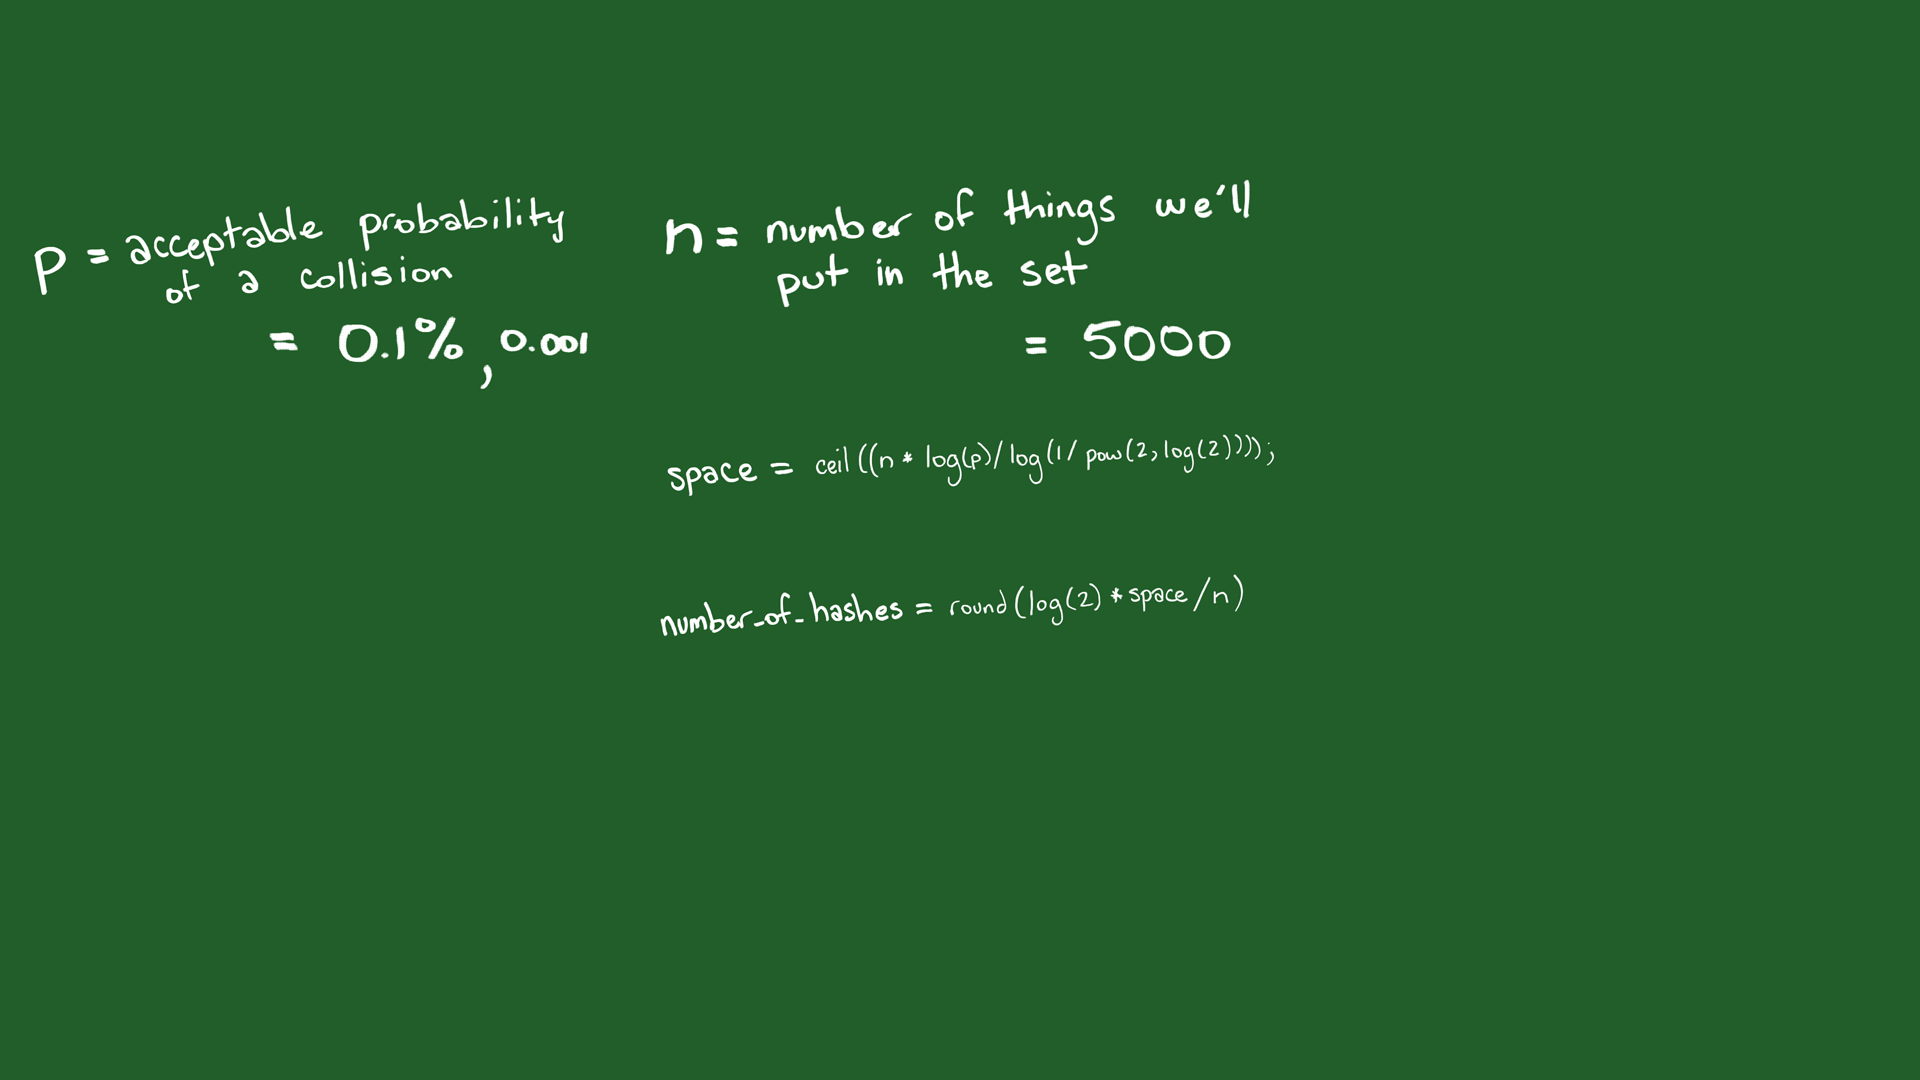 P = acceptable probability
of a collision
= 0.1%, 0.001
n = number of things we'll
put in the set
= 5000
space = ceil((n * log(p)/log(1/pow(2,log(2))));
number_of_hashes = round(log(2) * space/n)